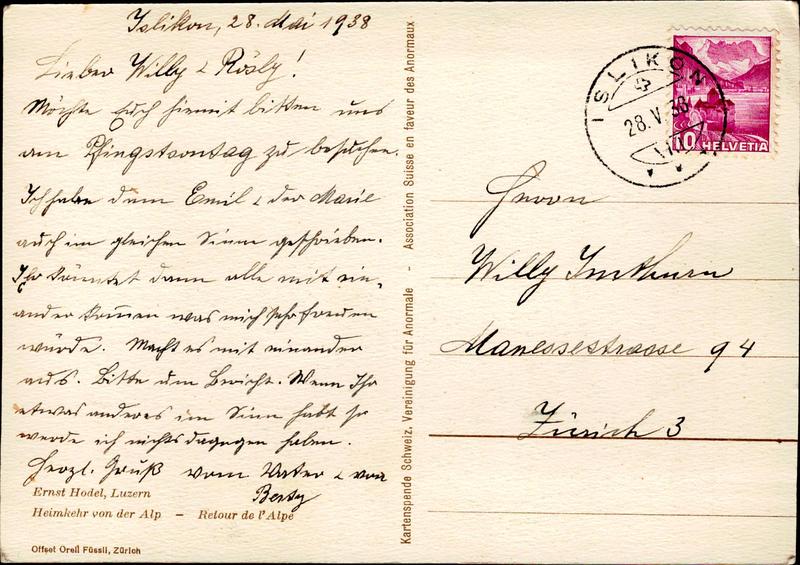 Islikon, 28. Mai 1938
Lieber Willy & Rösly!
Möchte Euch hiemit bitten uns
am Pfingstsontag zu besuchen.
Ich habe dem Emil & der Marie
auch im gleichen Sinn geschrieben.
Ihr könntet dann alle mit ein-
ander kommen was mich sehr freuen
würde. Macht es mit einander
aus. Bitte um Bericht. Wenn Ihr
etwas anderes im Sinn habt so
werde ich nichts dagegen haben.
Herzl. Gruß vom Vater & von
Berty
Ernst Hodel, Luzern
Heimkehr von der Alp – Retour de l'Alpe
Offset Orell Füssli, Zürich
Kartenspende Schweiz. Vereinigung für Anormale - Association Suisse en faveur des Anormaux
ISLIKON
28.V.38
10 HELVETIA
Herrn
Willy Imthurn
Manessestrasse 94
Zürich 3